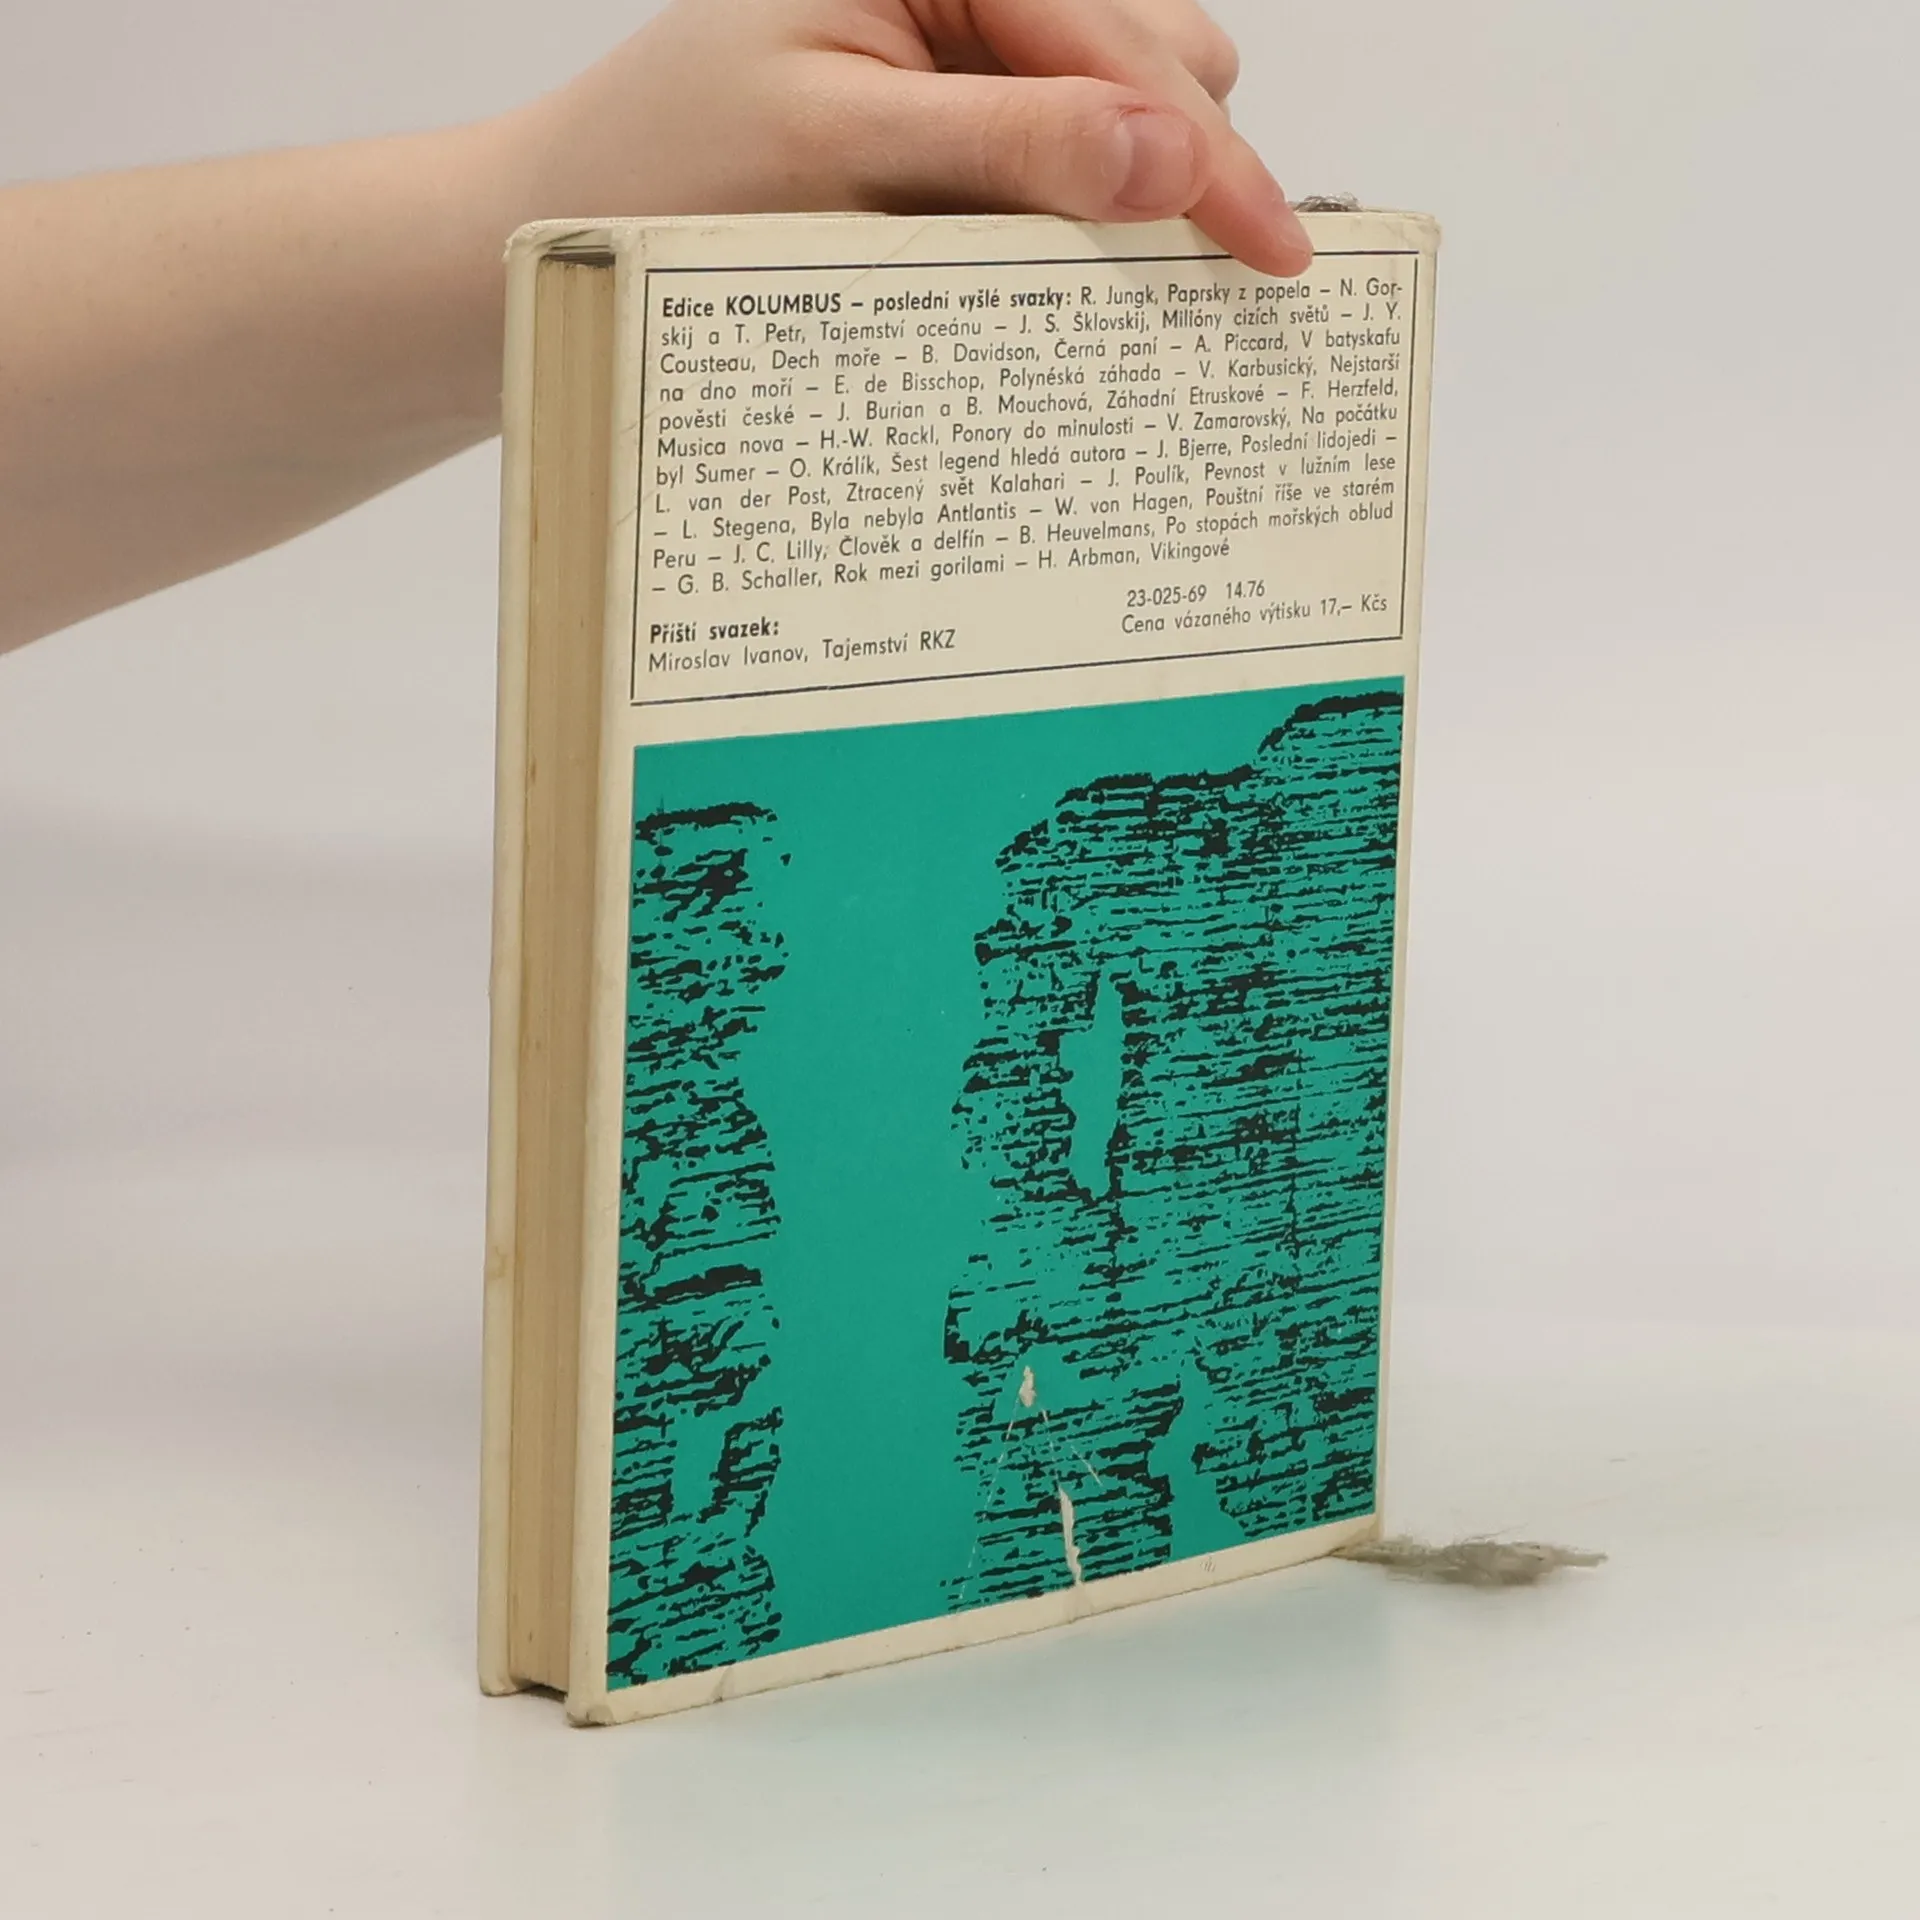 Edice KOLUMBUS – poslední vyšlé svazky: R. Jungk, Paprsky z popela – N. Gor-
skij a T. Petr, Tajemství oceánu – J. S. Šklovskij, Milióny cizích světů – J. Y.
Cousteau, Dech moře – B. Davidson, Černá paní – A. Piccard, V batyskafu
na dno moří – E. de Bisschop, Polynéská záhada – V. Karbusický, Nejstarší
pověsti české – J. Burian a B. Mouchová, Záhadní Etruskové – F. Herzfeld,
Musica nova – H.-W. Rackl, Ponory do minulosti – V. Zamarovský, Na počátku
byl Sumer – O. Králík, Šest legend hledá autora – J. Bjerre, Poslední lidojedi –
L. van der Post, Ztracený svět Kalahari – J. Poulík, Pevnost v lužním lese
– L. Stegena, Byla nebyla Antlantis – W. von Hagen, Pouštní říše ve starém
Peru – J. C. Lilly, Člověk a delfín – B. Heuvelmans, Po stopách mořských oblud
– G. B. Schaller, Rok mezi gorilami – H. Arbman, Vikingové
23-025-69 14.76
Cena vázaného výtisku 17,– Kčs
Příští svazek:
Miroslav Ivanov, Tajemství RKZ